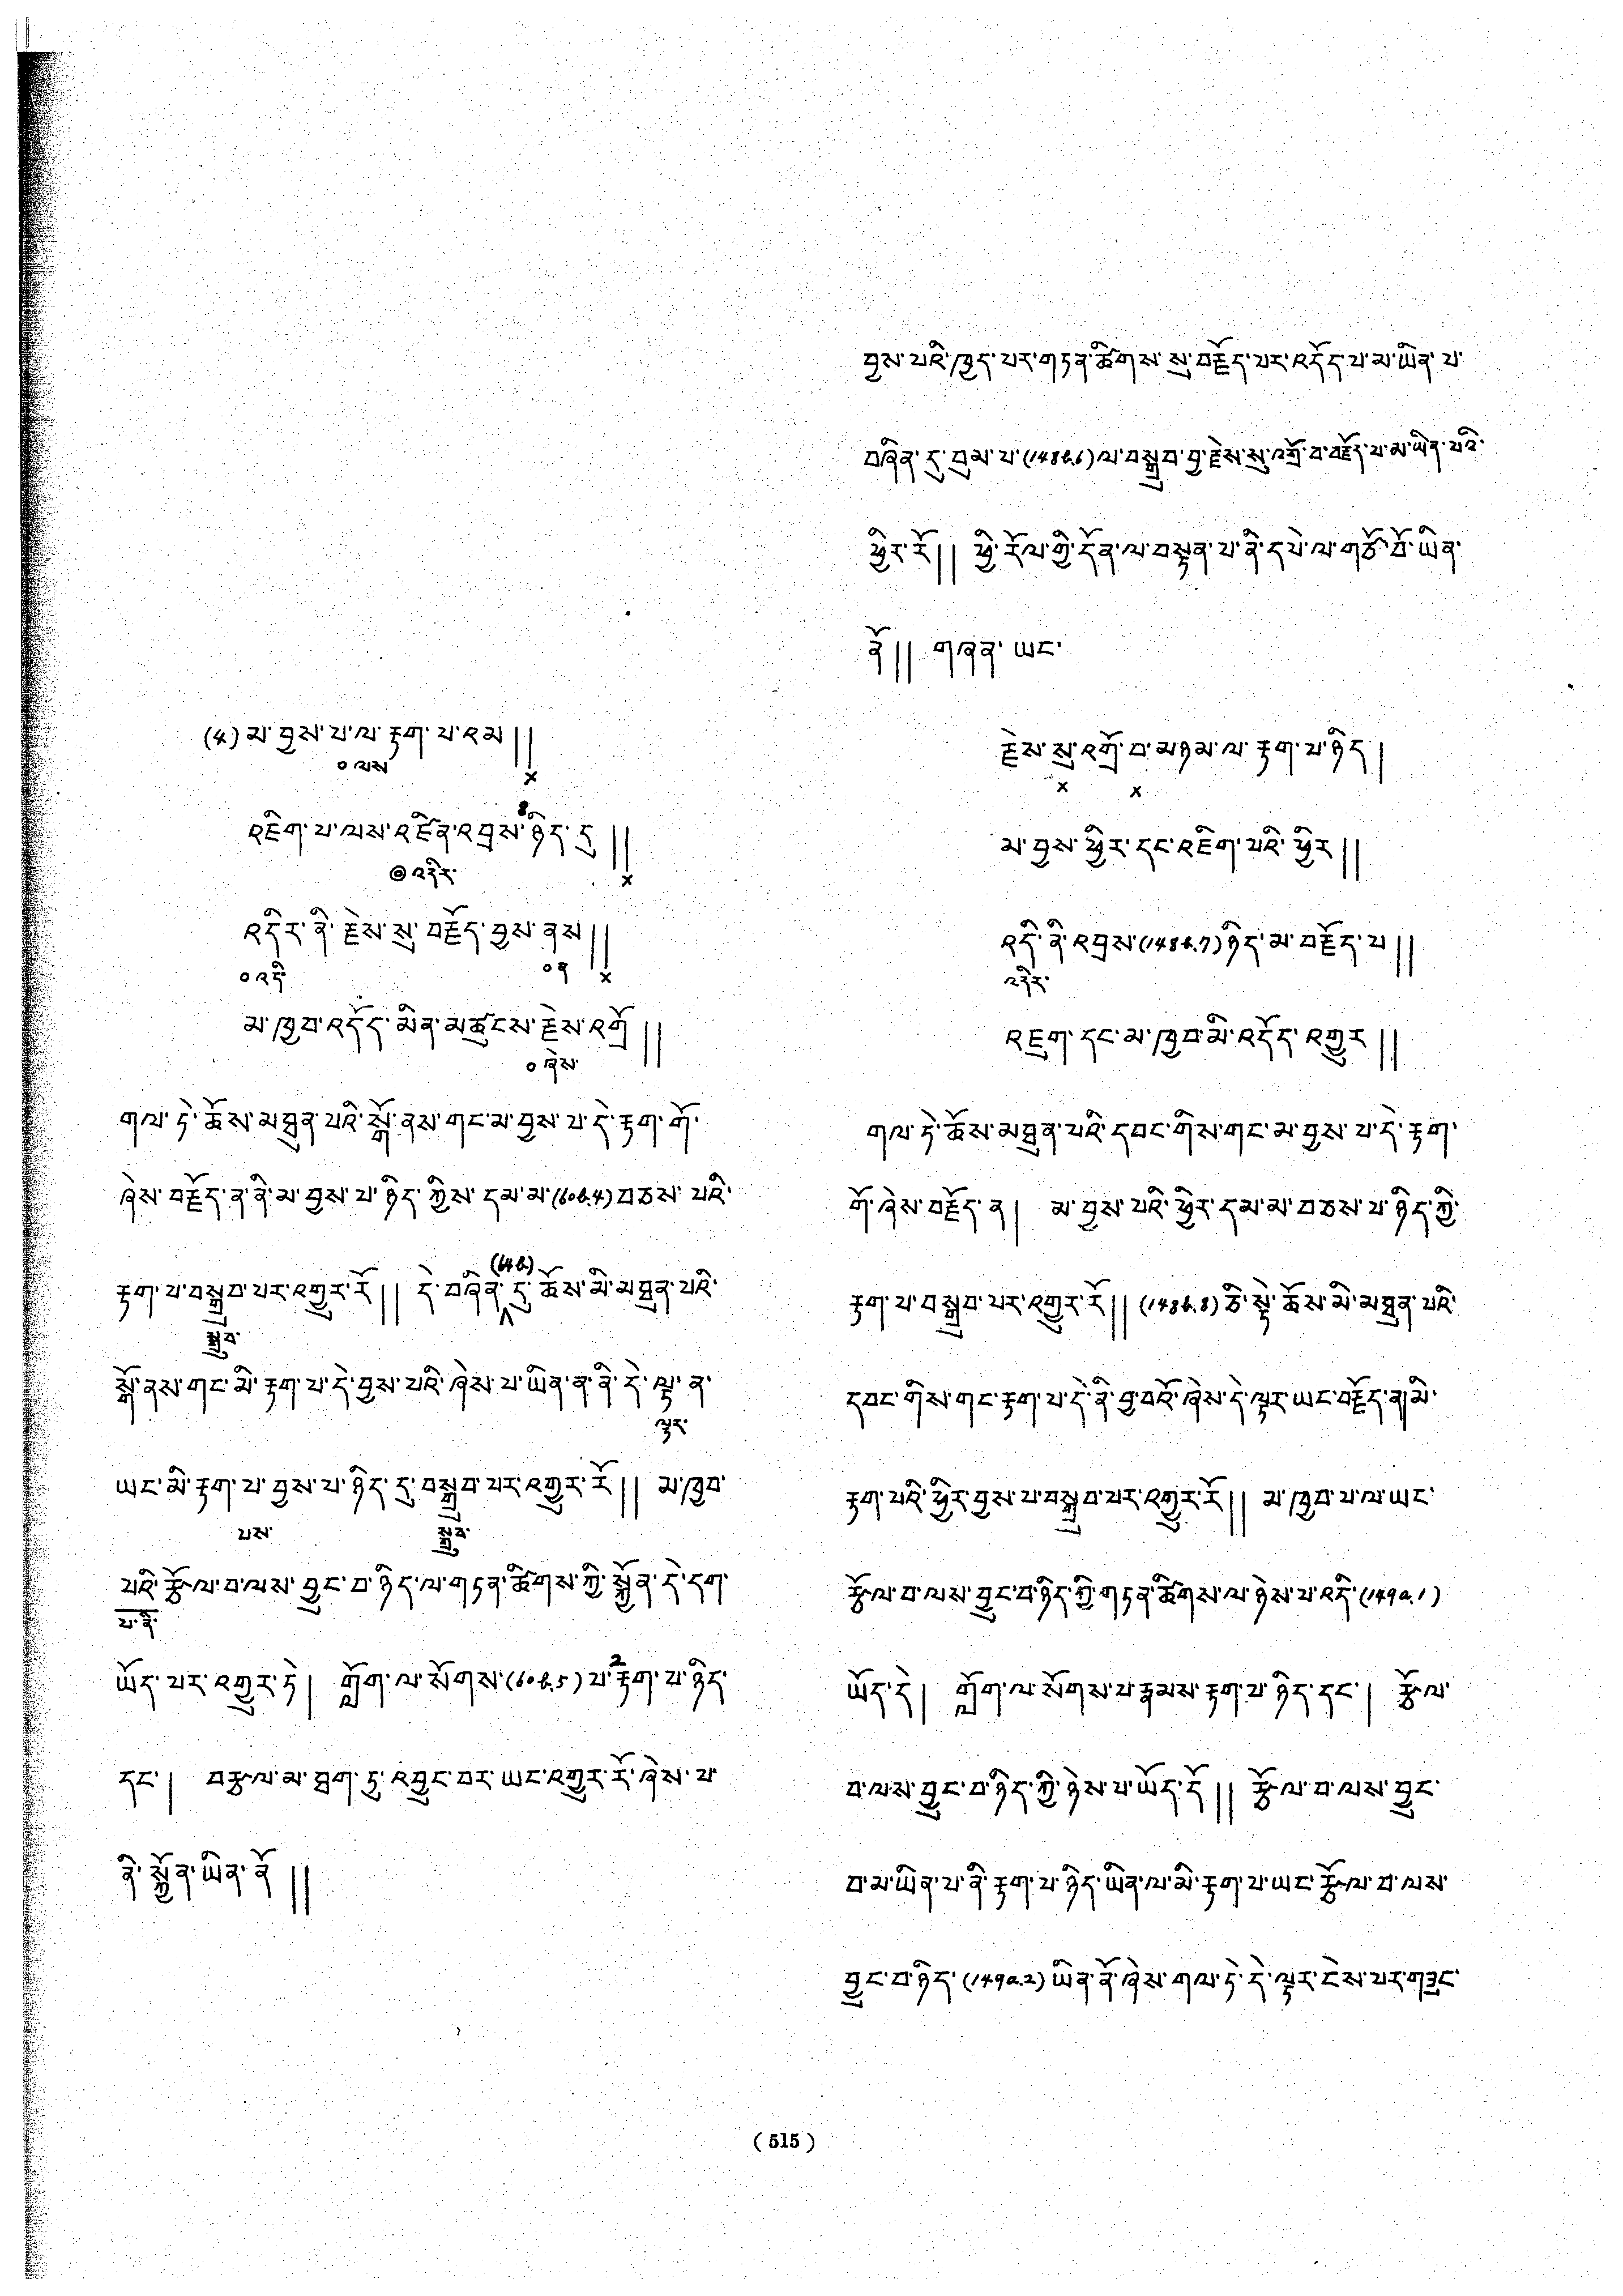 (4) མ་བྱས་པ་ལ་རྟག་པ་འམ།།
༠ ལས ×
འཇིག་པ་ལས་འཛིན་འབྲས་ཉིད་དུ།།
◎ འདིར་ ×
འདིར་ནི་རྗེས་སུ་བརྗོད་བྱས་ནས།།
༠ འདི ༠ ན ×
མ་ཁྱབ་འདོད་མིན་མཚུངས་རྗེས་འགྲོ།།
༠ ཞེས་
གལ་ཏེ་ཆོས་མཐུན་པའི་སྒོ་ནས་གང་མ་བྱས་པ་དེ་རྟག་གོ་
ཞེས་བརྗོད་ན་ནི་མ་བྱས་པ་ཉིད་ཀྱིས་དམ་མ་(60b.4)བཅས་པའི་
(64b)
རྟག་པ་བསྒྲུབ་པར་འགྱུར་རོ།། དེ་བཞིན་དུ་ཆོས་མི་མཐུན་པའི་
སྒྲུབ་
སྒོ་ནས་གང་མི་རྟག་པ་དེ་བྱས་པའི་ཞེས་པ་ཡིན་ན་ནི་དེ་ལྟ་ན་
ལྟར་
ཡང་མི་རྟག་པ་བྱས་པ་ཉིད་དུ་བསྒྲུབ་པར་འགྱུར་རོ།། མ་ཁྱབ་
པས་ སྒྲུབ་
པའི་རྩོལ་བ་ལས་བྱུང་བ་ཉིད་ལ་གཏན་ཚིགས་ཀྱི་སྐྱོན་དེ་དག་
པ་ནི་
ཡོད་པར་འགྱུར་ཏེ། གློག་ལ་སོགས་(60b.5)པ་2རྟག་པ་ཉིད་
དང་། བརྩལ་མ་ཐག་ཏུ་འབྱུང་བར་ཡང་འགྱུར་རོ་ཞེས་པ་
ནི་སྐྱོན་ཡིན་ནོ།།
བྱས་པའི་ཁྱད་པར་གཏན་ཚིགས་སུ་བརྗོད་པར་འདོད་པ་མ་ཡིན་པ་
བཞིན་དུ་བུམ་པ་(148b.6)ལ་བསྒྲུབ་བྱ་རྗེས་སུ་འགྲོ་བ་བརྗོད་པ་མ་ཡིན་པའི་
ཕྱིར་རོ།། ཕྱི་རོལ་གྱི་དོན་ལ་བསྟན་པ་ནི་དཔེ་ལ་གཙོ་བོ་ཡིན་
ནོ།། གཞན་ཡང་
རྗེས་སུ་འགྲོ་བ་མཉམ་ལ་རྟག་པ་ཉིད།
× ×
མ་བྱས་ཕྱིར་དང་འཇིག་པའི་ཕྱིར།།
འདི་ནི་འབྲས་(148b.7)ཉིད་མ་བརྗོད་པ།།
འདིར་
འཇུག་དང་མ་ཁྱབ་མི་འདོད་འགྱུར།།
གལ་ཏེ་ཆོས་མཐུན་པའི་དབང་གིས་གང་མ་བྱས་པ་དེ་རྟག་
གོ་ཞེས་བརྗོད་ན། མ་བྱས་པའི་ཕྱིར་དམ་མ་བཅས་པ་ཉིད་ཀྱི་
རྟག་པ་བསྒྲུབ་པར་འགྱུར་རོ།། (148b.8) ཅི་སྟེ་ཆོས་མི་མཐུན་པའི་
དབང་གིས་གང་རྟག་པ་དེ་ནི་བྱ་བའོ་ཞེས་དེ་ལྟར་ཡང་བརྗོད་ན།མི་
རྟག་པའི་ཕྱིར་བྱས་པ་བསྒྲུབ་པར་འགྱུར་རོ།། མ་ཁྱབ་པ་ལ་ཡང་
རྩོལ་བ་ལས་བྱུང་བ་ཉིད་ཀྱི་གཏན་ཚིགས་ལ་ཉེས་པ་འདི་(149a.1)
ཡོད་དེ། གློག་ལ་སོགས་པ་རྣམས་རྟག་པ་ཉིད་དང་། རྩོལ་
བ་ལས་བྱུང་བ་ཉིད་ཀྱི་ཉེས་པ་ཡོད་དོ།། རྩོལ་བ་ལས་བྱུང་
བ་མ་ཡིན་པ་ནི་རྟག་པ་ཉིད་ཡིན་ལ་མི་རྟག་པ་ཡང་རྩོལ་བ་ལས་
བྱུང་བ་ཉིད་(149a.2)ཡིན་ནོ་ཞེས་གལ་ཏེ་དེ་ལྟར་ངེས་པར་གཟུང་
( 515 )